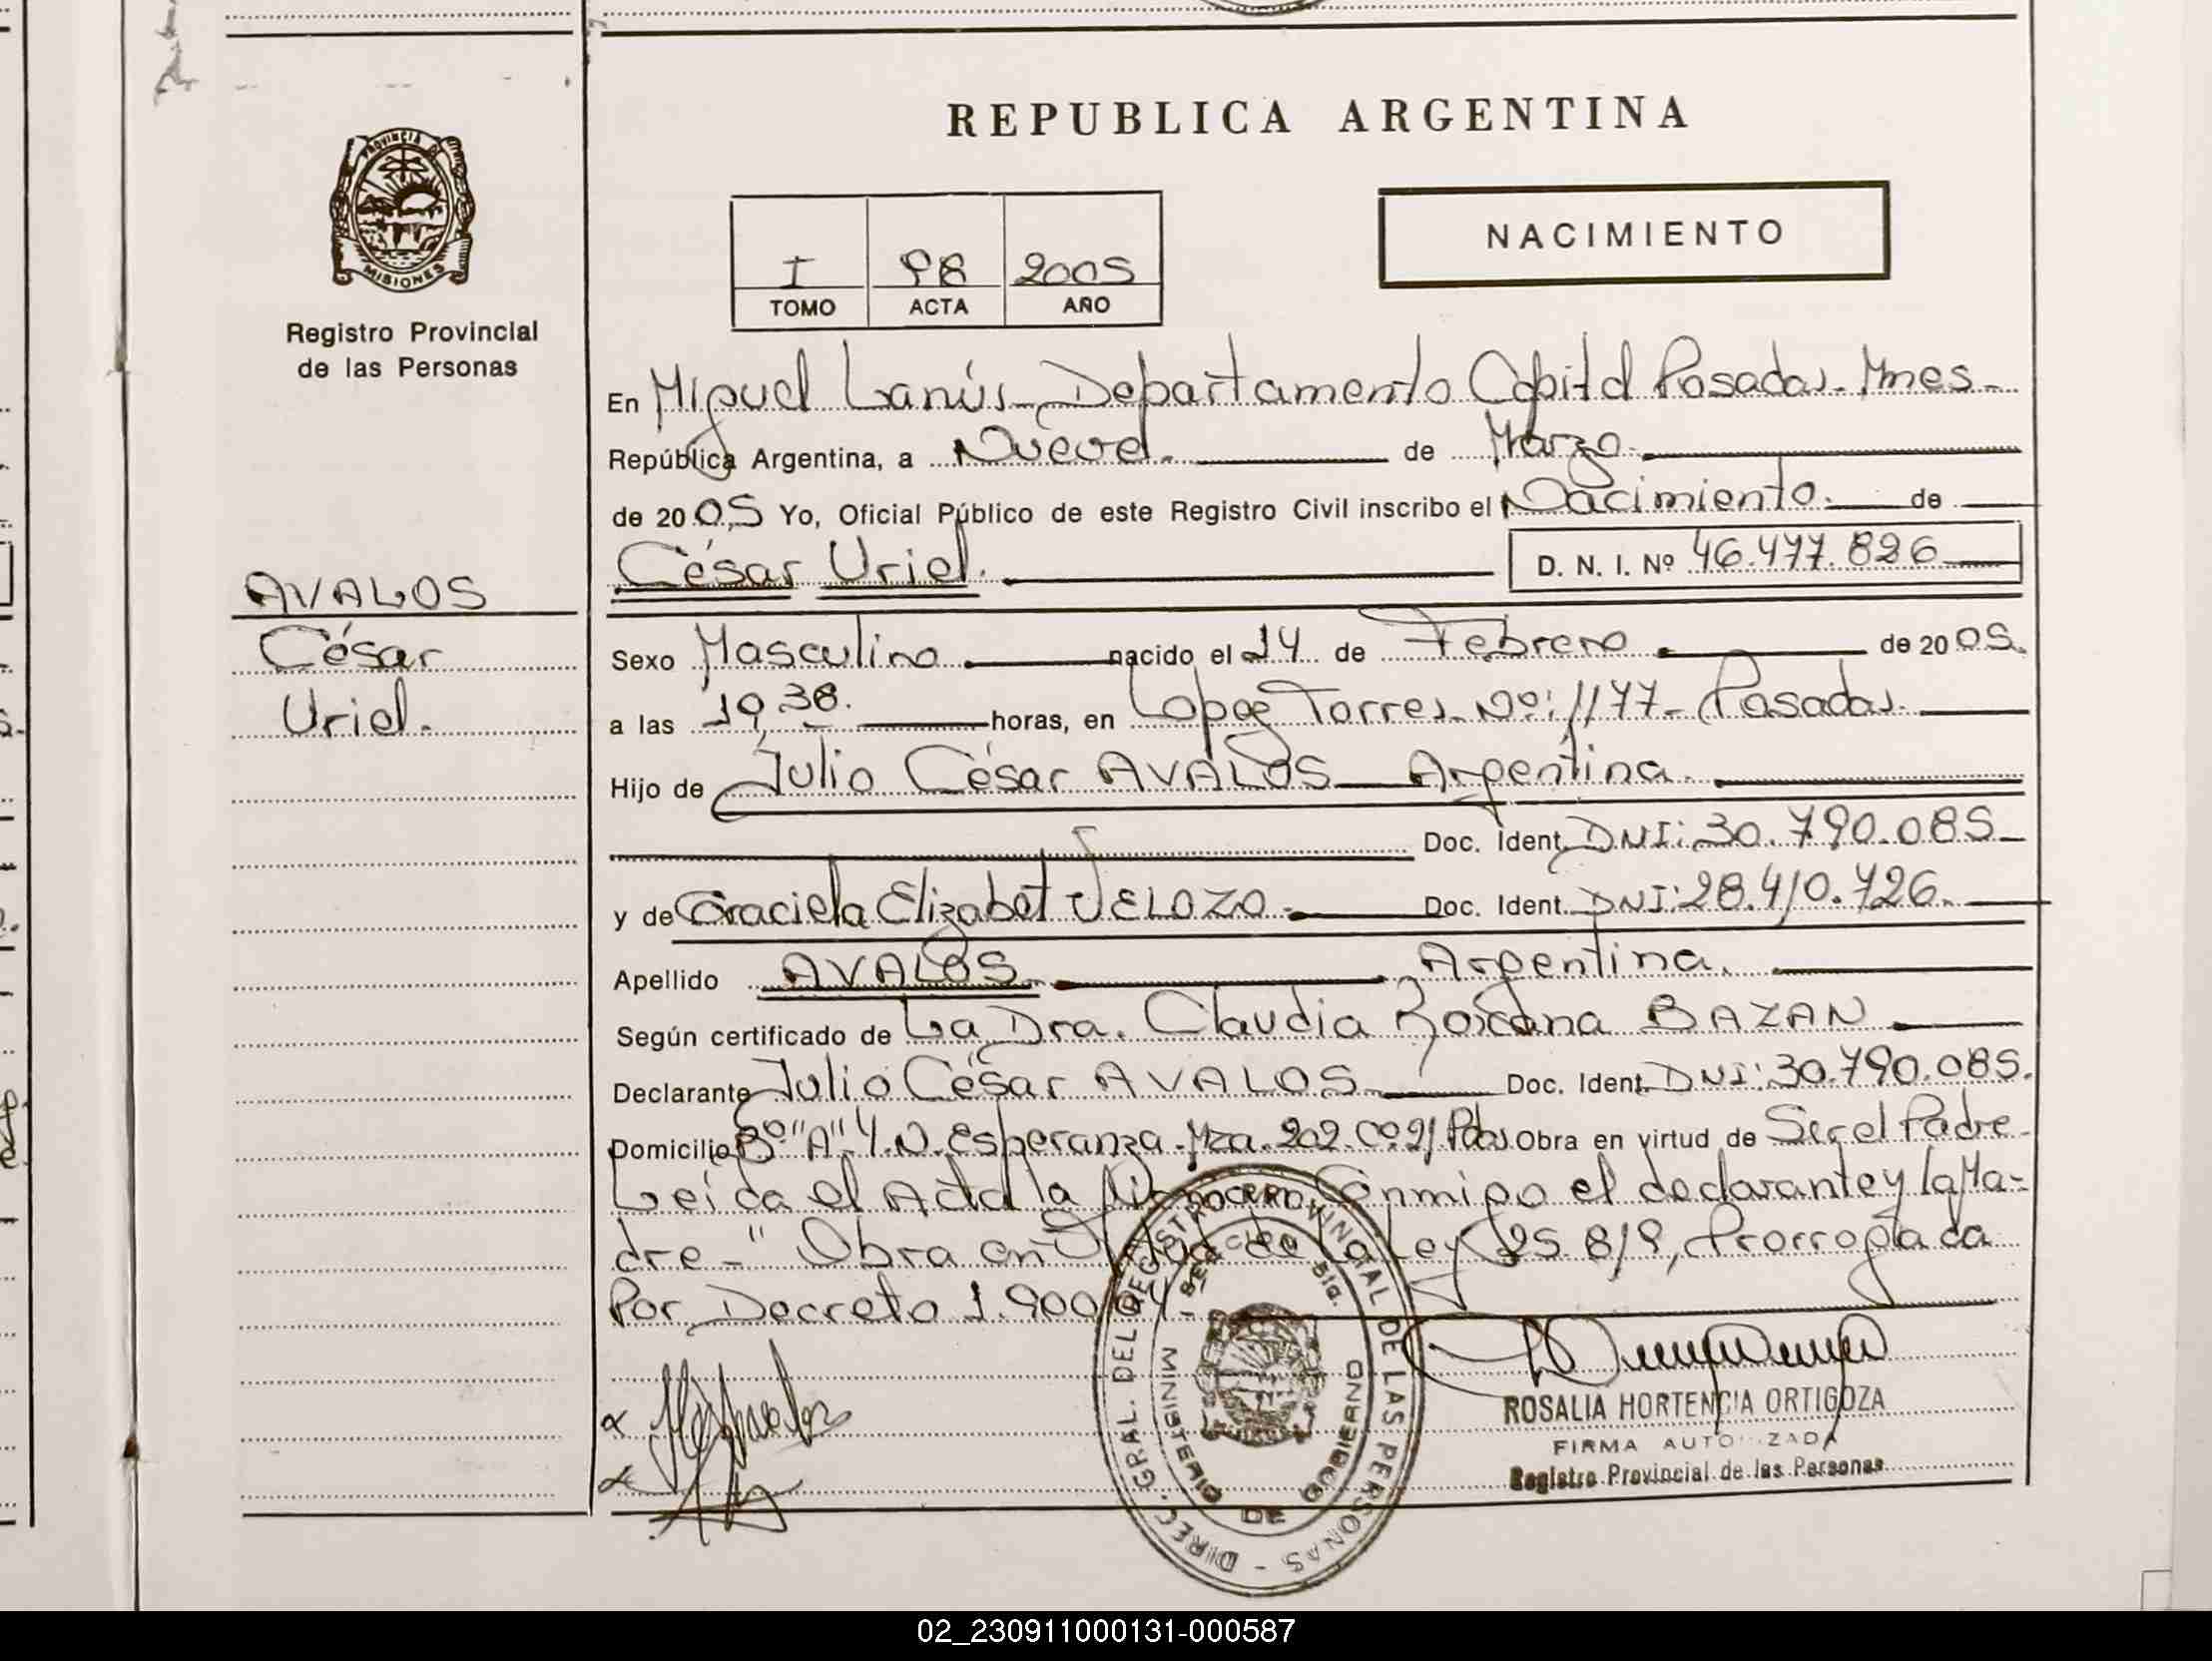 REPUBLICA ARGENTINA
PROVINCIA DE MISIONES
Registro Provincial
de las Personas
NACIMIENTO
I 98 2005
TOMO ACTA AÑO
En Miguel Lanús - Departamento Capital Posadas - Mnes -
República Argentina, a Nueve. de Marzo.
de 2005 Yo, Oficial Público de este Registro Civil inscribo el Nacimiento. de
César Uriel. D. N. I. Nº 46.477.826
AVALOS
César
Uriel.
Sexo Masculino nacido el 14 de Febrero de 2005.
a las 19,38. horas, en López Torres Nº: 1177 - Posadas.
Hijo de Julio César AVALOS Argentina.
Doc. Ident. DNI: 30.790.085
y de Graciela Elizabet VELOZO. Doc. Ident. DNI: 28.410.726.
Apellido AVALOS Argentina.
Según certificado de La Dra. Claudia Roxana BAZAN
Declarante Julio César AVALOS Doc. Ident. DNI: 30.790.085.
Domicilio Bº "A" 4. N. Esperanza - Mza. 202. Cº. 21 Pdas. Obra en virtud de Ser el Padre -
Leída el Acta la firman conmigo el declarante y la Ma-
dre - " Obra en de la Ley 25.819, Prorrogada
Por Decreto 1.900/04 -
DIREC. GRAL. DEL REGISTRO PROVINCIAL DE LAS PERSONAS -
MINISTERIO DE GOBIERNO
ROSALIA HORTENCIA ORTIGOZA
FIRMA AUTORIZADA
Registro Provincial de las Personas
02_230911000131-000587